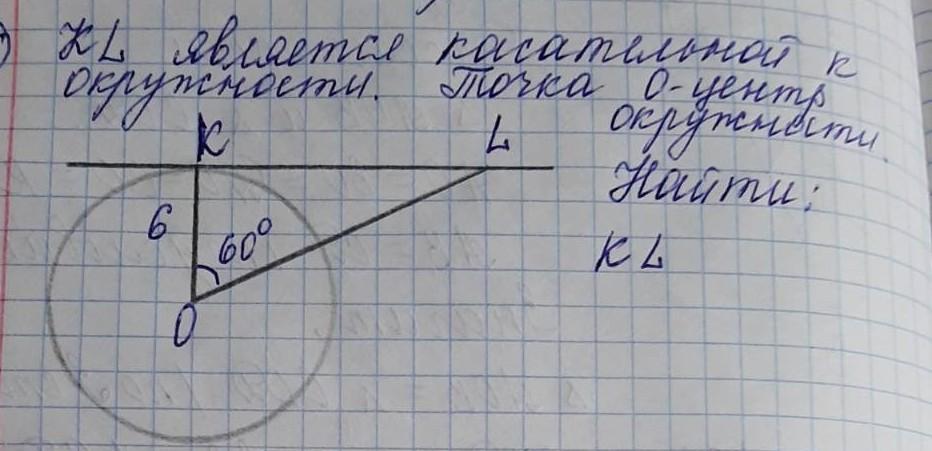 KL является касательной к
окружности. Точка О-центр
окружности.
K L
Найти:
6 60°
KL
O